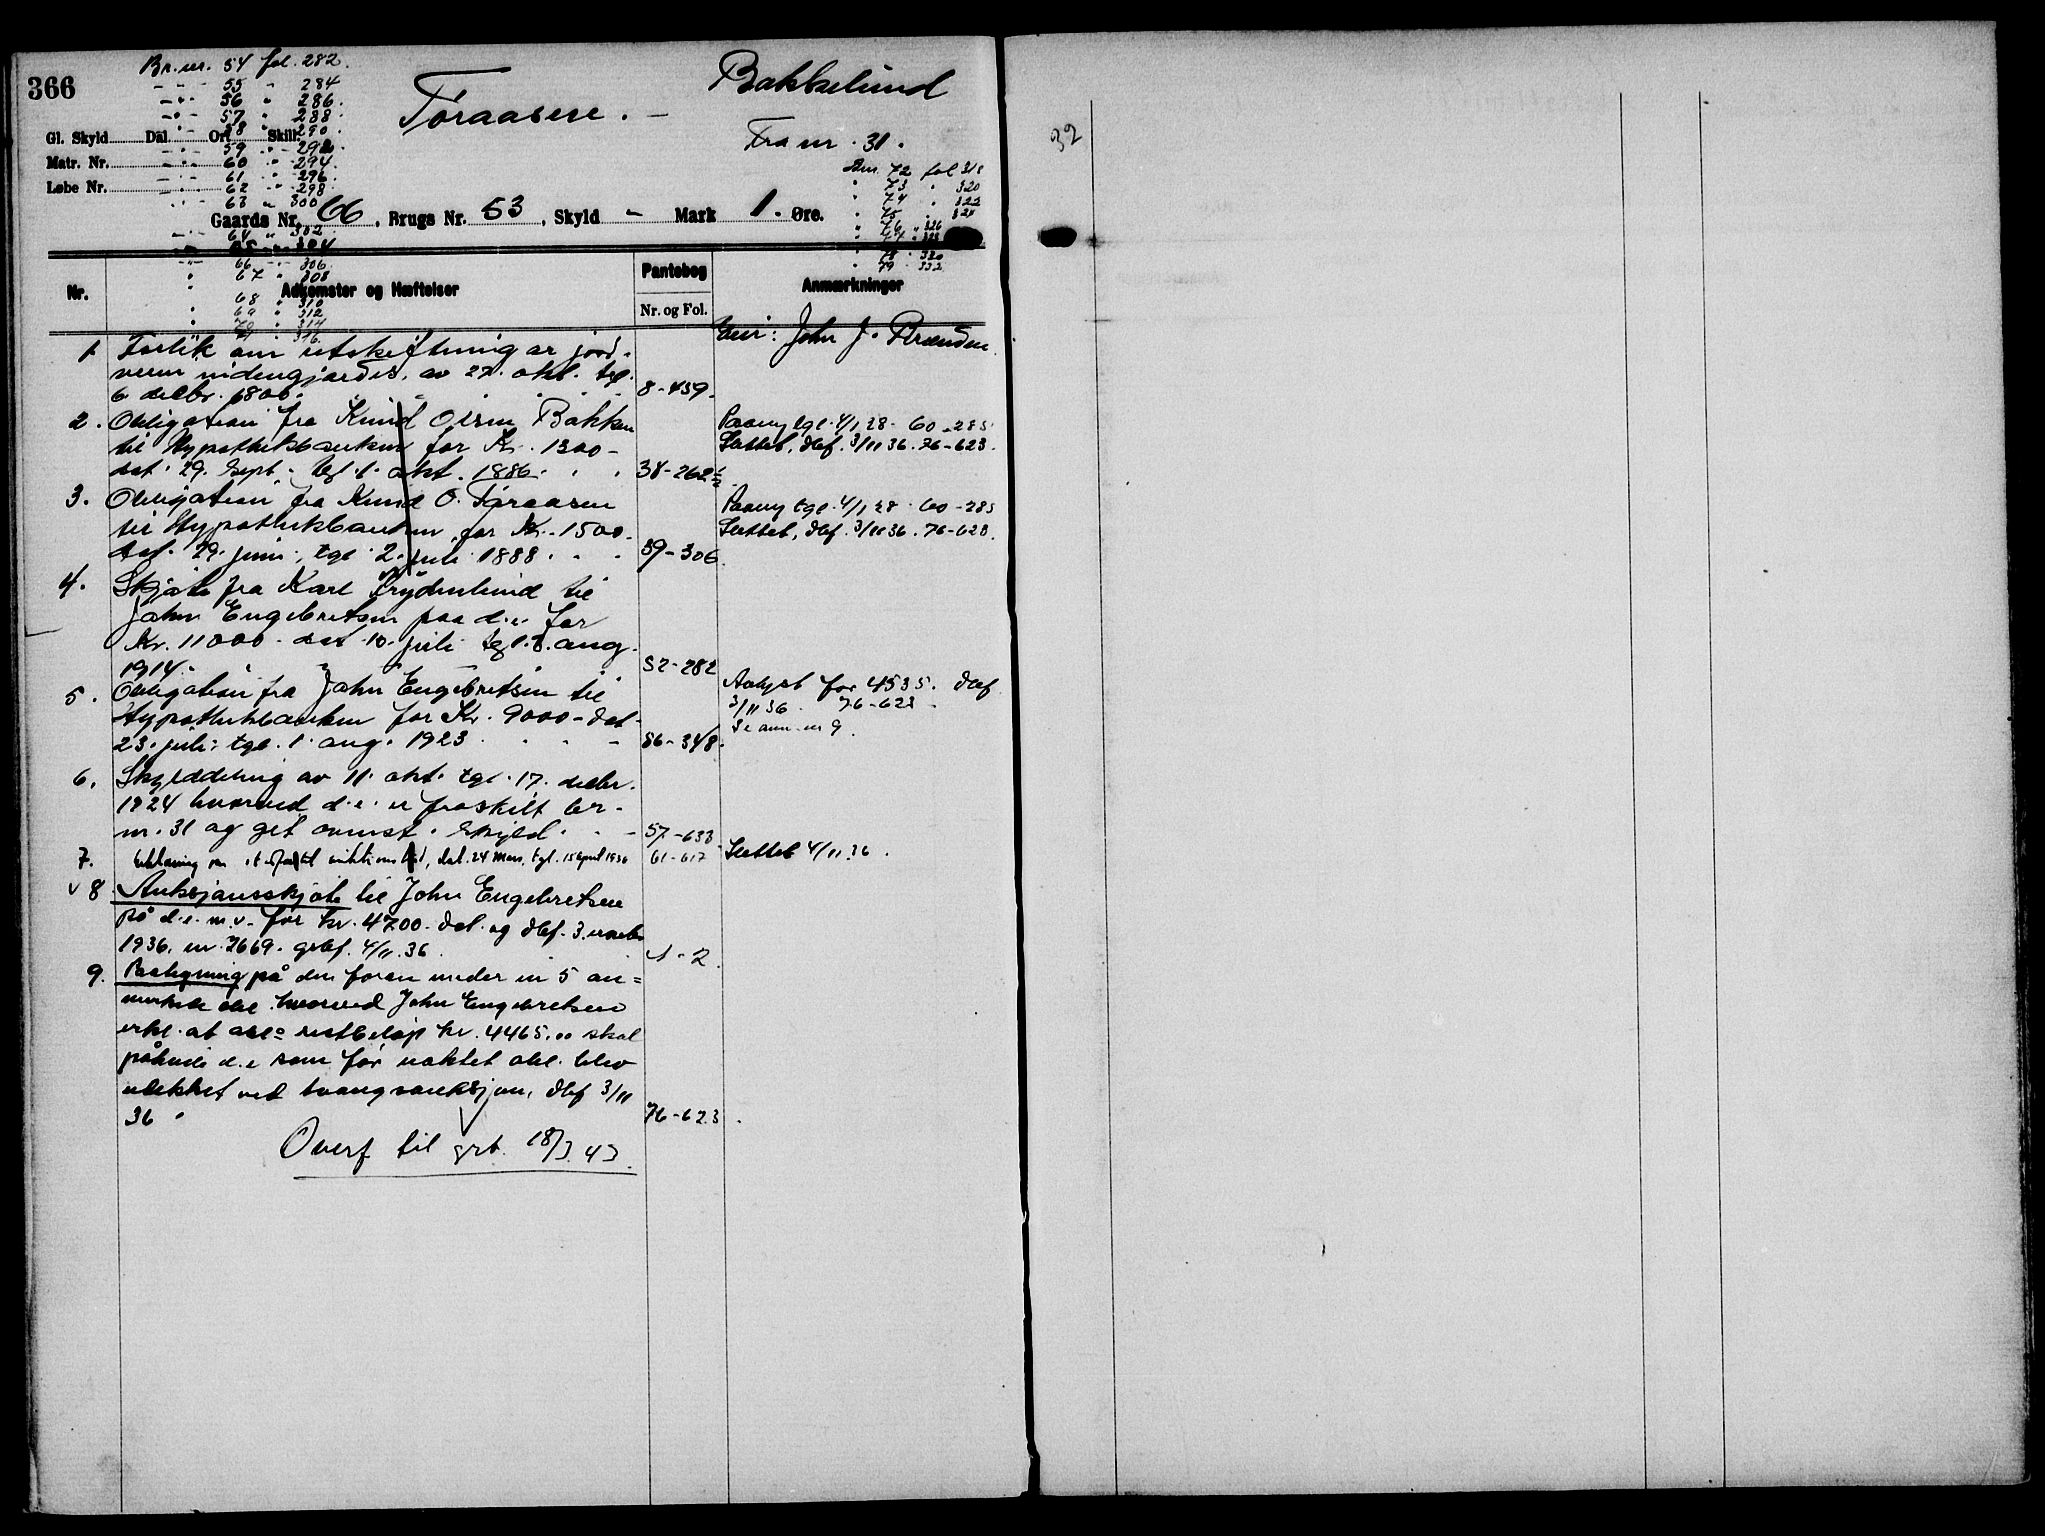 366
Br.nr. 54 fol. 282.
55 " 284
56 " 286.
57 " 288
58 " 290.
59 " 292.
60 " 294.
61 " 296.
62 " 298
63 " 300
64 " 302
65 " 304
66 " 306
67 " 308
68 " 310
69 " 312
70 " 314
71 " 316.
Toraasen. –
Bakkelund
Fra nr. 31.
Gl. Skyld Dal. Ort Skill.
Matr. Nr.
Løbe Nr.
Bnr. 72 fol 318
" 73 " 320
" 74 " 322
" 75 " 324
" 76 " 326
" 77 " 328
" 78 " 330
" 79 " 332
Gaards Nr. 66, Brugs Nr. 53, Skyld – Mark 1. Øre.
Nr.
Adkomster og Hæftelser
Pantebog
Nr. og Fol.
Anmærkninger
Eier: John J.
1 Forlik om utskiftning av jord-
av 27. okt. tgl.
6 decbr. 1806. 8-459.
2. Obligation fra Knud Olsen Bakken
til Hypothekbanken for Kr. 1300-
dat. 29. Sept. tgl 1. okt. 1886. 38-262
Paany tgl. 4/1 28. 60-285
Slettet, dbf. 3/11 36. 76-623.
3. Obligation fra Knud O. Toraasen
til Hypothekbanken for Kr. 1500.
dat. 29. juni, tgl. 2. juli 1888. 39-306.
Paany tgl. 4/1 28. 60-285
Slettet, dbf. 3/11 36. 76-623.
4. Skjøte fra Karl Frydenlund til
John Engebretsen paa d.e. for
Kr. 11000- dat 10. juli tgl. 8. aug.
1914. 52-282
5. Obligation fra John Engebretsen til
Hypothekbanken for Kr. 9000- dat.
23. juli, tgl. 1. aug. 1923 56-348.
Avlyst for 4535. dbf
3/11 36. 76-623.
Se anm. nr 9.
6. Skylddeling av 11. okt. tgl. 17. decbr.
1924 hvorved d.e. er fraskilt br.
nr. 31 og git ovenst. skyld. 57-633
7. Erklæring om dat. 24 Mars, tgl. 15 April 1936 61-617
Slettet 4/11 36.
v 8. Auksjonsskjøte til John Engebretsen
på d.e. m.v. for kr. 4700. dat. og dbf. 3. november
1936. nr. 2669. grbf. 4/11. 36. 1-2.
9. Påtegning på den foran under nr 5 an-
merkede obl. hvorved John Engebretsen
erkl. at obl= restbeløp kr. 4465,00 skal
påhvile d.e som før uaktet obl. blev
udekket ved tvangsauksjon, dbf 3/11
36. 76-623.
Overf til grb. 18/3. 43.
32